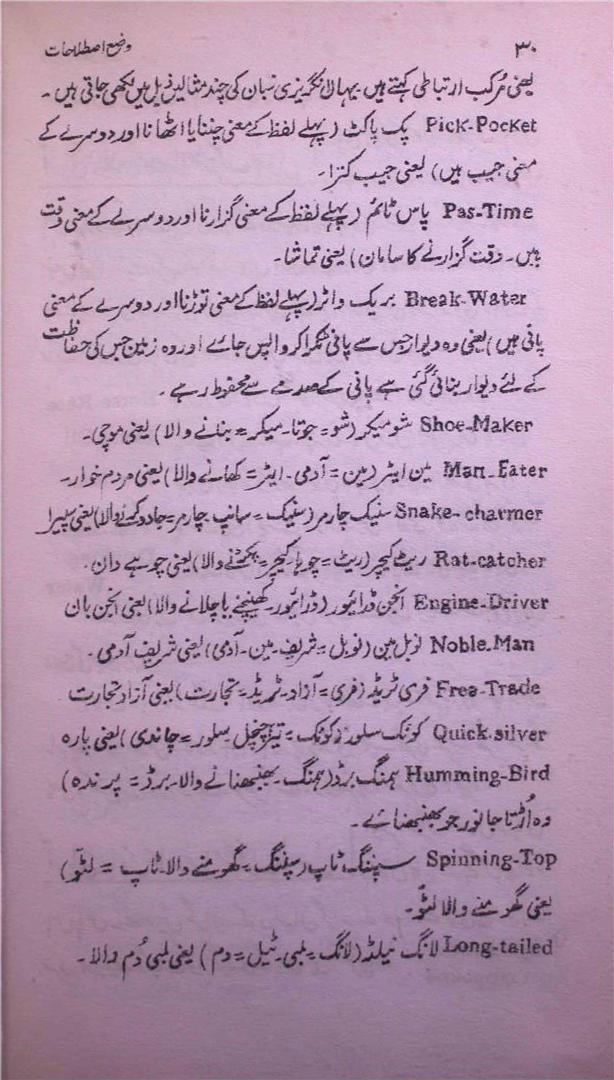 ۳۰ وضع اصطلاحات
یعنی مرکب ارتباطی کہتے ہیں۔ یہاں انگریزی زبان کی چند مثالیں ذیل میں لکھی جاتی ہیں۔
Pick-Pocket پک پاکٹ (پہلے لفظ کے معنی چننا یا اٹھانا اور دوسرے کے
معنی جیب ہیں) یعنی جیب کترا۔
Pas-Time پاس ٹائم (پہلے لفظ کے معنی گزارنا اور دوسرے کے معنی وقت
ہیں۔ وقت گزارنے کا سامان) یعنی تماشا۔
Break-Water بریک واٹر (پہلے لفظ کے معنی توڑنا اور دوسرے کے معنی
پانی ہیں) یعنی وہ دیوار جس سے پانی ٹکرا کر واپس جائے اور وہ زمین جس کی حفاظت
کے لئے دیوار بنائی گئی ہے پانی کے صدمے سے محفوظ رہے۔
Shoe-Maker شو میکر (شو = جوتا۔ میکر = بنانے والا) یعنی موچی۔
Man-Eater مین ایٹر (مین = آدمی۔ ایٹر = کھانے والا) یعنی مردم خوار۔
Snake-charmer سنیک چارمر (سنیک = سانپ چارمر = جادو کرنے والا) یعنی سپیرا
Rat-catcher ریٹ کیچر (ریٹ = چوہا۔ کیچر = پکڑنے والا) یعنی چوہے دان۔
Engine-Driver انجن ڈرائیور (ڈرائیور = کھینچنے یا چلانے والا) یعنی انجن بان
Noble-Man نوبل مین (نوبل = شریف۔ مین = آدمی) یعنی شریف آدمی۔
Free-Trade فری ٹریڈ (فری = آزاد۔ ٹریڈ = تجارت) یعنی آزاد تجارت
Quick-silver کوئک سلور (کوئک = تیز چنچل۔ سلور = چاندی) یعنی پارہ
Humming-Bird ہمنگ برڈ (ہمنگ = بھنبھنانے والا۔ برڈ = پرندہ)
وہ اُڑتا جانور جو بھنبھنائے۔
Spinning-Top سپننگ ٹاپ (سپننگ = گھومنے والا۔ ٹاپ = لٹّو)
یعنی گھومنے والا لٹّو۔
Long-tailed لانگ ٹیلڈ (لانگ = لمبی۔ ٹیل = دم) یعنی لمبی دُم والا۔